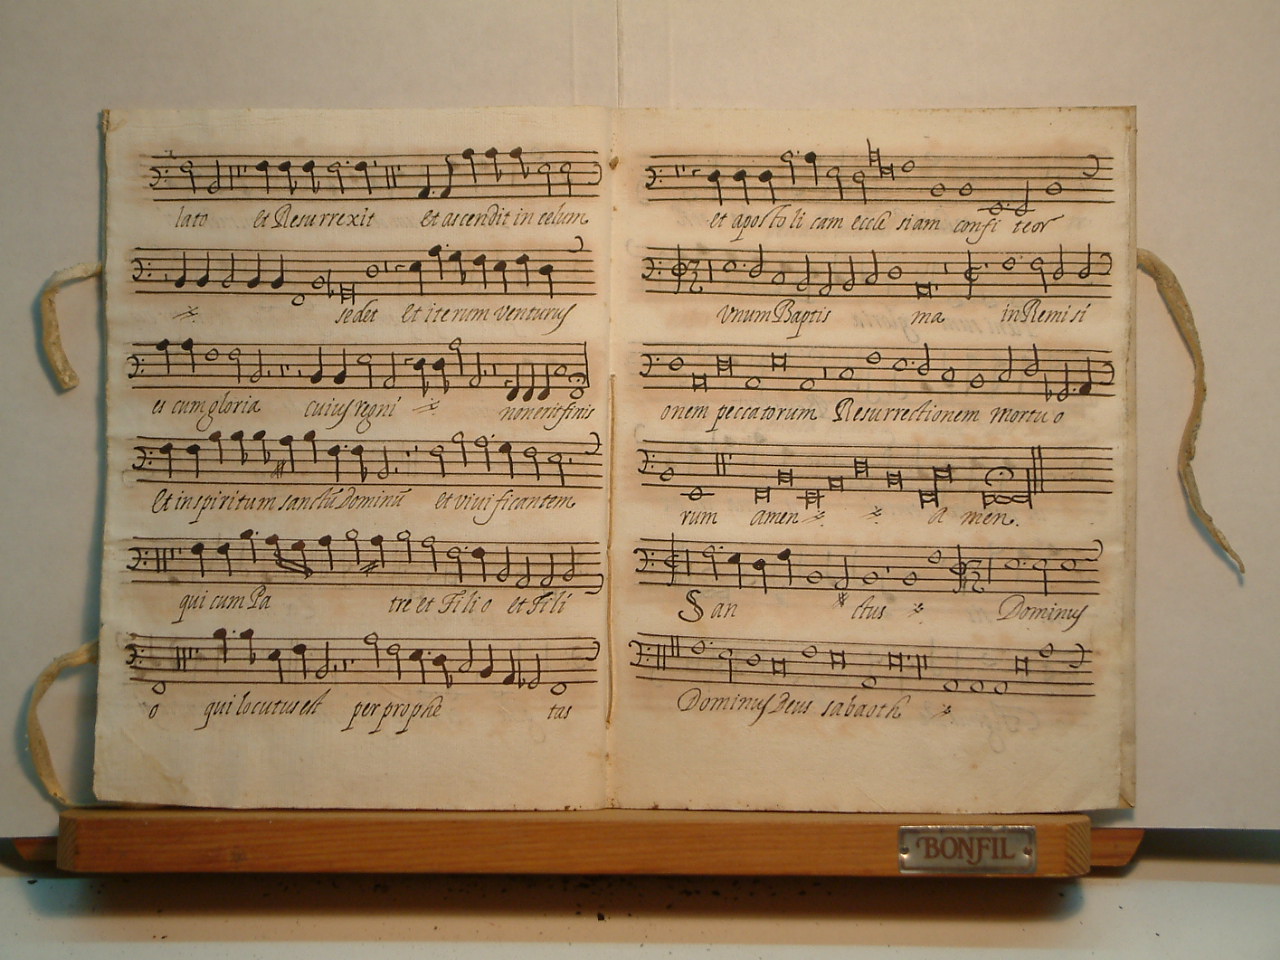 lato et Resurrexit et ascendit in celum
sedet et iterum venturus
es cum gloria cuius regni non erit finis
Et in spiritum sanctũ Dominũ et vivi ficantem
qui cum Pa tre et Filio et Fili
o qui locutus est per prophe tas
et apostoli cam eccle siam confi teor
vnum Baptis ma in Remi si
onem peccatorum Resurrectionem mortu o
rum amen a men.
San ctus Dominus
Dominus Deus sabaoth
BONFIL